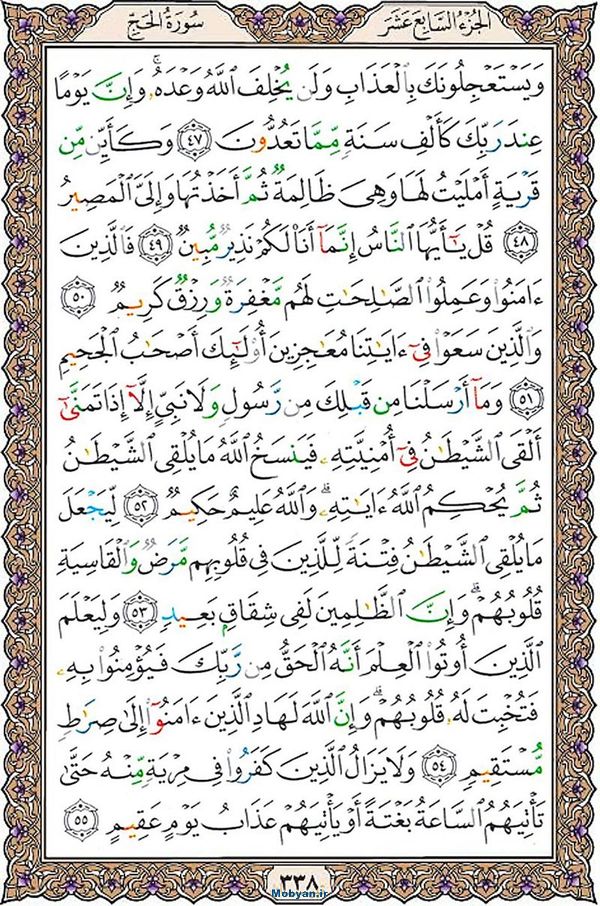 سُورَةُ الحَجّ
الجُزءُ السَّابِعَ عَشَرَ
وَيَسْتَعْجِلُونَكَ بِالْعَذَابِ وَلَن يُخْلِفَ اللَّهُ وَعْدَهُۥ ۚ وَإِنَّ يَوْمًا
عِندَ رَبِّكَ كَأَلْفِ سَنَةٍ مِّمَّا تَعُدُّونَ ٤٧ وَكَأَيِّن مِّن
قَرْيَةٍ أَمْلَيْتُ لَهَا وَهِيَ ظَالِمَةٌ ثُمَّ أَخَذْتُهَا وَإِلَيَّ الْمَصِيرُ
٤٨ قُلْ يَٰٓأَيُّهَا النَّاسُ إِنَّمَآ أَنَا۠ لَكُمْ نَذِيرٌ مُّبِينٌ ٤٩ فَالَّذِينَ
ءَامَنُوا۟ وَعَمِلُوا۟ الصَّٰلِحَٰتِ لَهُم مَّغْفِرَةٌ وَرِزْقٌ كَرِيمٌ ٥٠
وَالَّذِينَ سَعَوْا۟ فِىٓ ءَايَٰتِنَا مُعَٰجِزِينَ أُو۟لَٰٓئِكَ أَصْحَٰبُ الْجَحِيمِ
٥١ وَمَآ أَرْسَلْنَا مِن قَبْلِكَ مِن رَّسُولٍ وَلَا نَبِىٍّ إِلَّآ إِذَا تَمَنَّىٰٓ
أَلْقَى الشَّيْطَٰنُ فِىٓ أُمْنِيَّتِهِۦ فَيَنسَخُ اللَّهُ مَا يُلْقِى الشَّيْطَٰنُ
ثُمَّ يُحْكِمُ اللَّهُ ءَايَٰتِهِۦ ۗ وَاللَّهُ عَلِيمٌ حَكِيمٌ ٥٢ لِّيَجْعَلَ
مَا يُلْقِى الشَّيْطَٰنُ فِتْنَةً لِّلَّذِينَ فِى قُلُوبِهِم مَّرَضٌ وَالْقَاسِيَةِ
قُلُوبُهُمْ ۗ وَإِنَّ الظَّٰلِمِينَ لَفِى شِقَاقٍۭ بَعِيدٍ ٥٣ وَلِيَعْلَمَ
الَّذِينَ أُوتُوا۟ الْعِلْمَ أَنَّهُ الْحَقُّ مِن رَّبِّكَ فَيُؤْمِنُوا۟ بِهِۦ
فَتُخْبِتَ لَهُۥ قُلُوبُهُمْ ۗ وَإِنَّ اللَّهَ لَهَادِ الَّذِينَ ءَامَنُوٓا۟ إِلَىٰ صِرَٰطٍ
مُّسْتَقِيمٍ ٥٤ وَلَا يَزَالُ الَّذِينَ كَفَرُوا۟ فِى مِرْيَةٍ مِّنْهُ حَتَّىٰ
تَأْتِيَهُمُ السَّاعَةُ بَغْتَةً أَوْ يَأْتِيَهُمْ عَذَابُ يَوْمٍ عَقِيمٍ ٥٥
٣٣٨
Mobyan.ir